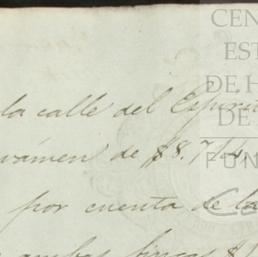 CEN
EST
DE H
DE
FUN
la calle del Espíri
vámen de $8.7
por cuenta de la
ambas fincas $1